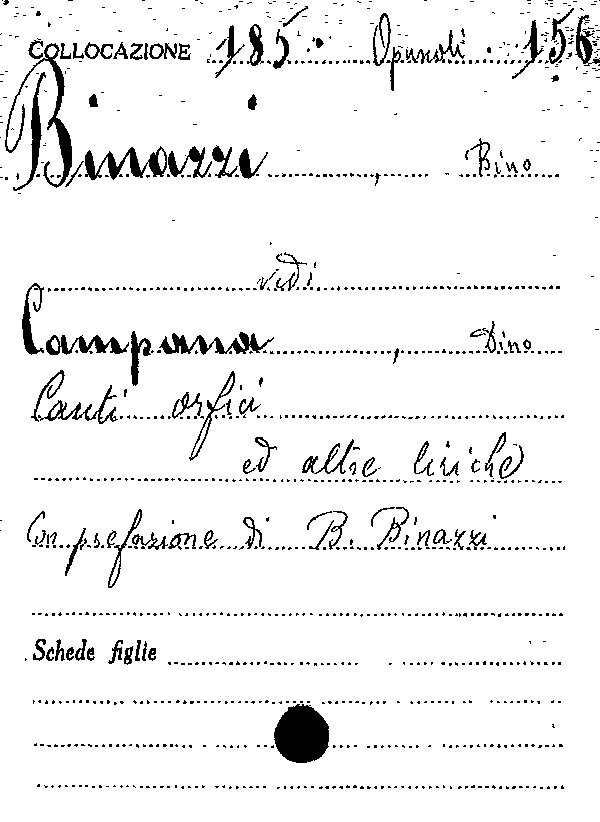 COLLOCAZIONE 185. Opuscoli. 156
Binazzi, Bino
vedi
Campana, Dino
Canti orfici
ed altre liriche
Con prefazione di B. Binazzi
Schede figlie